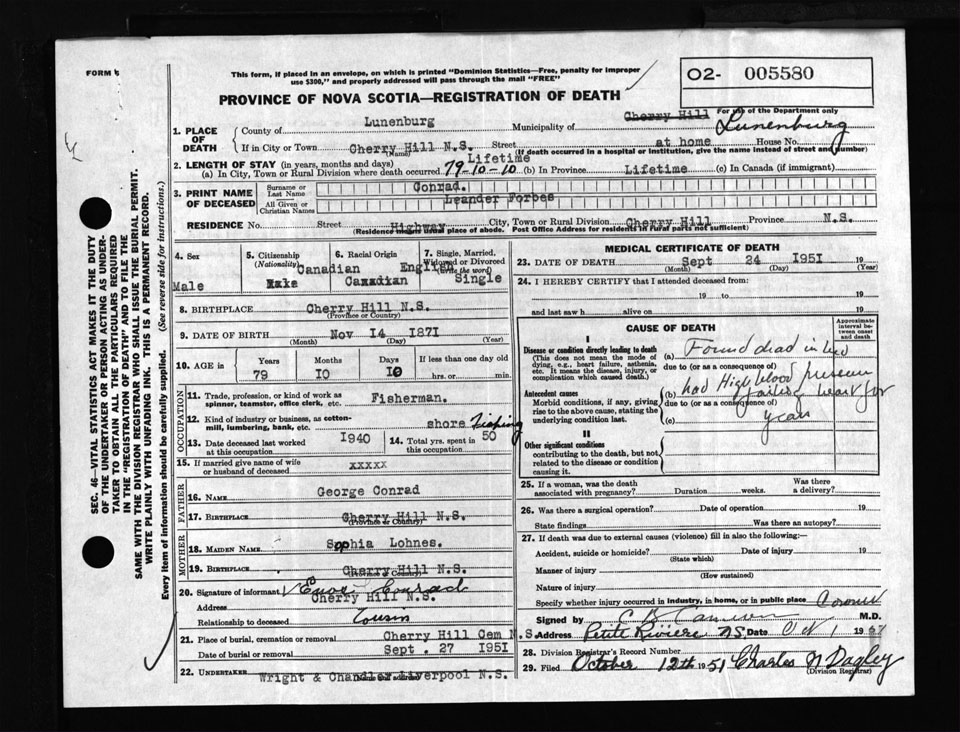 FORM
This form, if placed in an envelope, on which is printed "Dominion Statistics—Free, penalty for improper
use $300," and properly addressed will pass through the mail "FREE"
O2- 005580
PROVINCE OF NOVA SCOTIA—REGISTRATION OF DEATH
For use of the Department only
1. PLACE OF DEATH
County of Lunenburg Municipality of Cherry Hill Lunenburg
If in City or Town Cherry Hill N.S. Street at home House No.
(Name) (If death occurred in a hospital or institution, give the name instead of street and number)
2. LENGTH OF STAY (in years, months and days) Lifetime
(a) In City, Town or Rural Division where death occurred 79-10-10 (b) In Province Lifetime (c) In Canada (if immigrant)
3. PRINT NAME OF DECEASED
Surname or Last Name Conrad.
All Given or Christian Names Leander Forbes
RESIDENCE No. Street Highway City, Town or Rural Division Cherry Hill Province N.S.
(Residence means usual place of abode. Post Office Address for residents in rural parts not sufficient)
4. Sex
Male
5. Citizenship (Nationality)
Canadian
6. Racial Origin
English
Canadian
7. Single, Married, Widowed or Divorced (Write the word)
Single
8. BIRTHPLACE Cherry Hill N.S.
(Province or Country)
9. DATE OF BIRTH Nov 14 1871
(Month) (Day) (Year)
10. AGE
Years Months Days If less than one day old
79 10 10 hrs. or min.
OCCUPATION
11. Trade, profession, or kind of work as spinner, teamster, office clerk, etc. Fisherman.
12. Kind of industry or business, as cotton-mill, lumbering, bank, etc. shore Fishing
13. Date deceased last worked at this occupation 1940
14. Total yrs. spent in this occupation 50
15. If married give name of wife or husband of deceased xxxxx
FATHER
16. NAME George Conrad
17. BIRTHPLACE Cherry Hill N.S.
(Province or Country)
MOTHER
18. MAIDEN NAME Sophia Lohnes.
19. BIRTHPLACE Cherry Hill N.S.
20. Signature of informant Conrad
Address Cherry Hill N.S.
Relationship to deceased Cousin
21. Place of burial, cremation or removal Cherry Hill Cem N.S.
Date of burial or removal Sept. 27 1951
22. UNDERTAKER Wright & Chandler Liverpool N.S.
MEDICAL CERTIFICATE OF DEATH
23. DATE OF DEATH Sept 24 1951 19
(Month) (Day) (Year)
24. I HEREBY CERTIFY that I attended deceased from:
19 to 19
and last saw h alive on 19
CAUSE OF DEATH
Approximate interval between onset and death
I
Disease or condition directly leading to death
(This does not mean the mode of dying, e.g., heart failure, asthenia, etc. It means the disease, injury, or complication which caused death.)
(a) Found dead in bed
due to (or as a consequence of)
Antecedent causes
Morbid conditions, if any, giving rise to the above cause, stating the underlying condition last.
(b) had High blood pressure
due to (or as a consequence of)
failing heart for
(c) years
II
Other significant conditions
contributing to the death, but not related to the disease or condition causing it.
25. If a woman, was the death associated with pregnancy? Duration weeks. Was there a delivery?
26. Was there a surgical operation? Date of operation 19
State findings Was there an autopsy?
27. If death was due to external causes (violence) fill in also the following:—
Accident, suicide or homicide? Date of injury 19
(State which)
Manner of injury
(How sustained)
Nature of injury
Specify whether injury occurred in industry, in home, or in public place Coroner
Signed by C B Cameron M.D.
Address Petite Riviere N.S. Date Oct 1 19
28. Division Registrar's Record Number
29. Filed October 12th 1951 Charles N Dagley
(Division Registrar)
SEC. 46—VITAL STATISTICS ACT MAKES IT THE DUTY
OF THE UNDERTAKER OR PERSON ACTING AS UNDER-
TAKER TO OBTAIN ALL THE PARTICULARS REQUIRED
IN THE "REGISTRATION OF DEATH" AND TO FILE THE
SAME WITH THE DIVISION REGISTRAR WHO SHALL ISSUE THE BURIAL PERMIT.
WRITE PLAINLY WITH UNFADING INK. THIS IS A PERMANENT RECORD.
Every item of information should be carefully supplied. (See reverse side for instructions.)